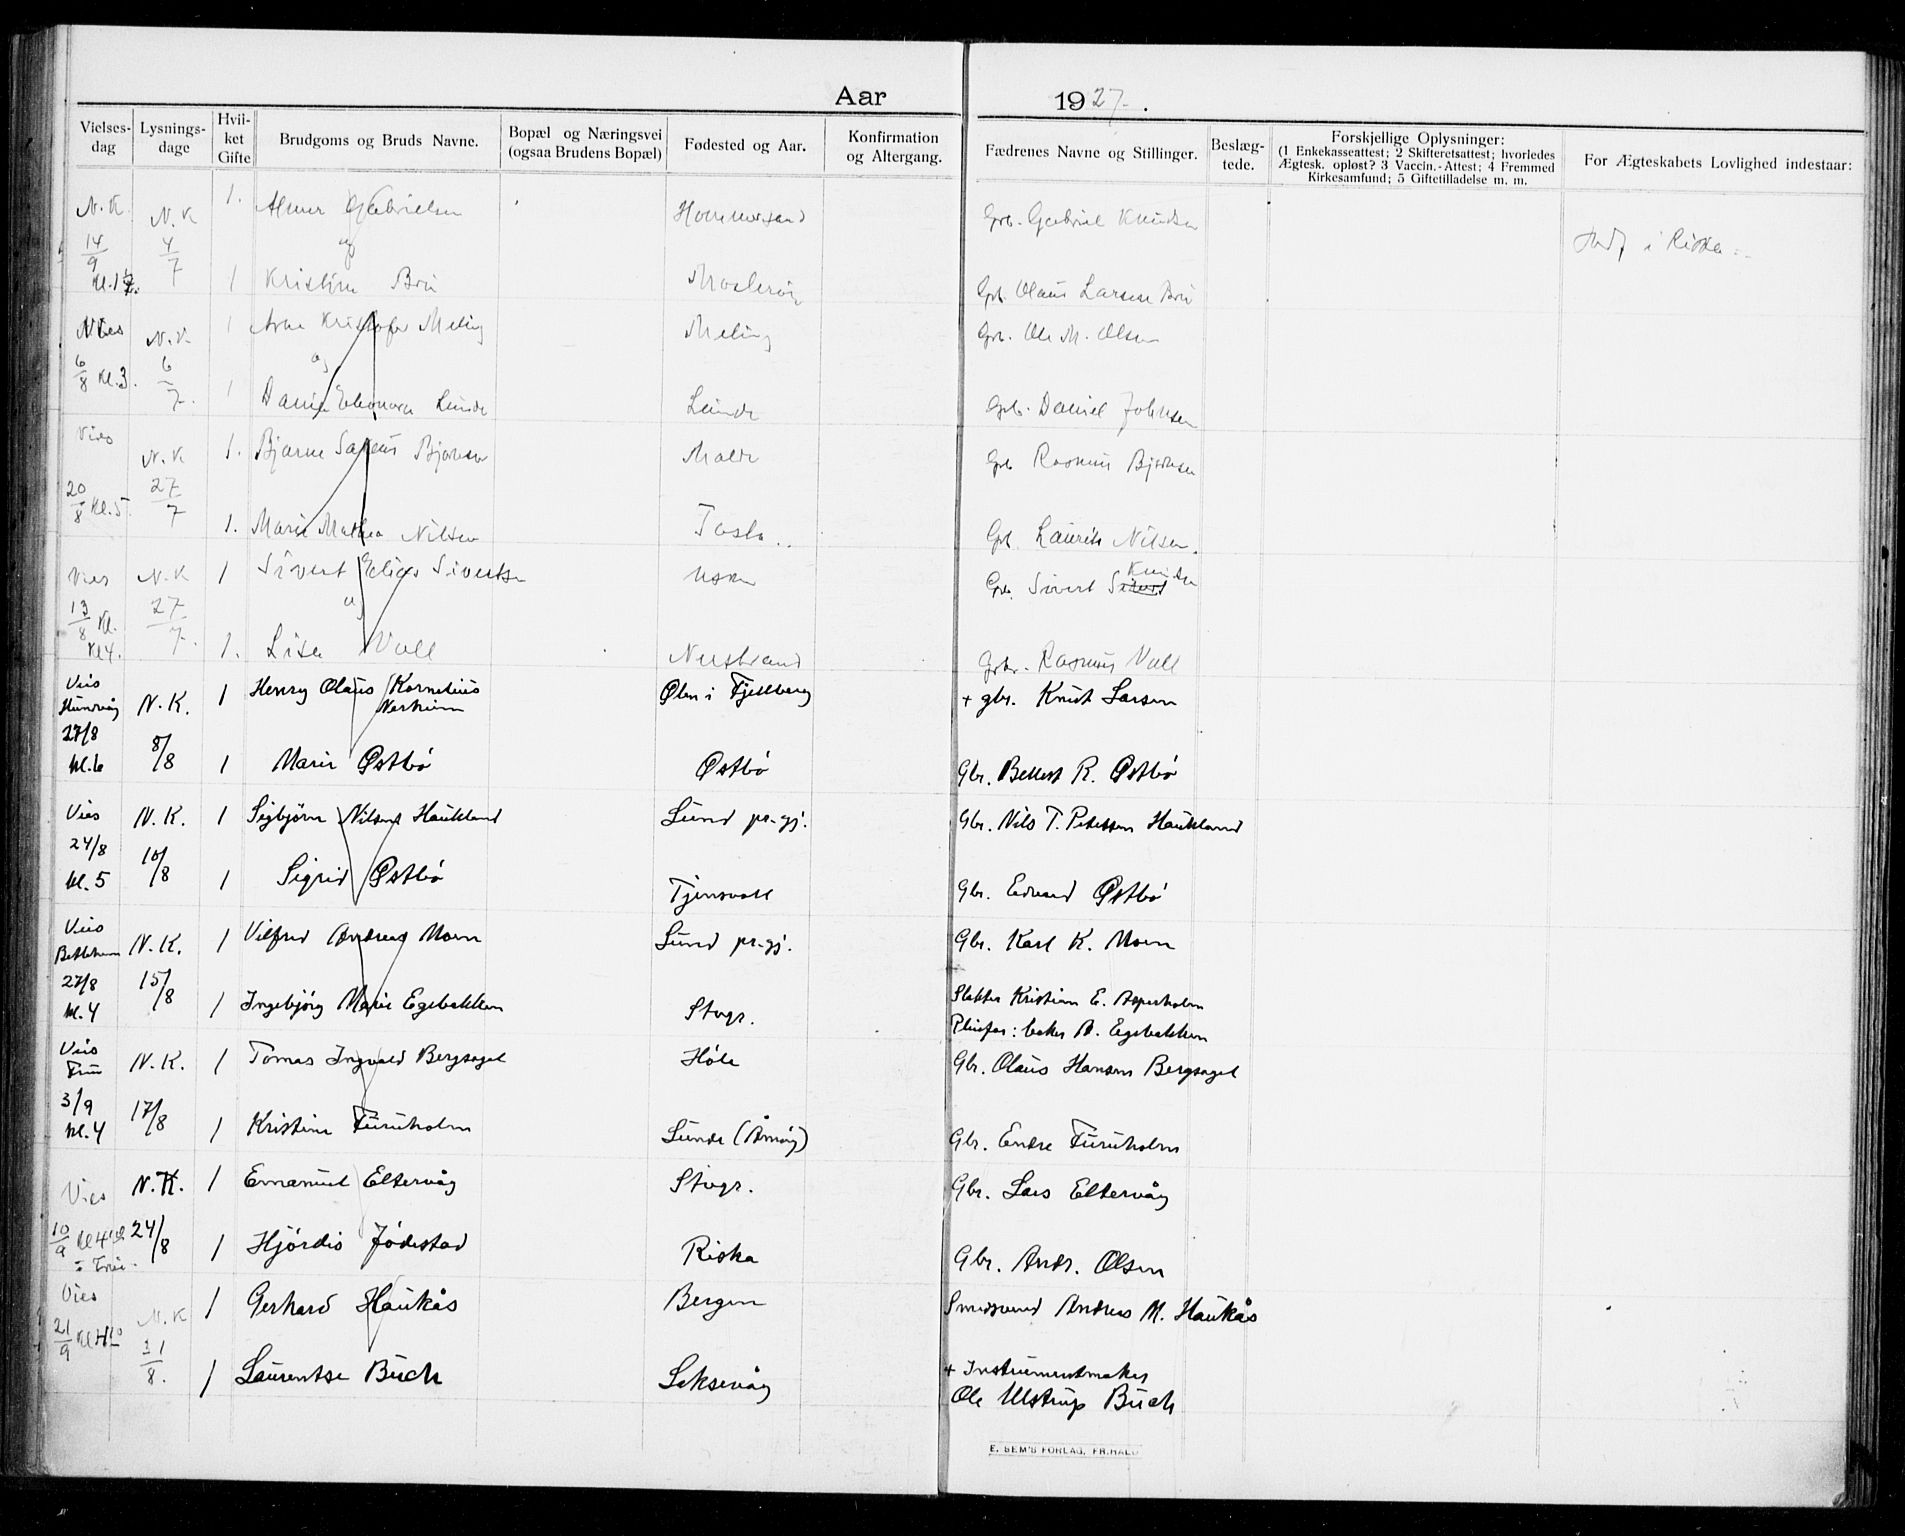 Aar 1927.
Vielses-dag
Lysnings-dage
Hvil-ket Gifte
Brudgoms og Bruds Navne.
Bopæl og Næringsvei (ogsaa Brudens Bopæl)
Fødested og Aar.
Konfirmation og Altergang.
Fædrenes Navne og Stillinger.
Beslæg-tede.
Forskjellige Oplysninger:
(1 Enkekasseattest; 2 Skifteretsattest; hvorledes
Ægtesk. opløst? 3 Vaccin.-Attest; 4 Fremmed
Kirkesamfund; 5 Giftetilladelse m. m.
For Ægteskabets Lovlighed indestaar:
N.K. 14/9 N.K 4/7 1. Gabrielsen Gbr. Gabriel Knudsen
og i Riska
1 Kristine Bru Mosterøy Gbr. Olaus Larsen Bru
Vies N.K 1 Arne Kristofer Meling Meling Gbr. Ole M. Olsen
6/8 Kl.3. 6/7. og
1 Eleonora Lunde Lunde Gbr. Daniel Johnsen
Vies N.K 1. Bjarne Bjørnsen Malde Gbr. Rasmus Bjørnsen
20/8 Kl.5. 27/7
1. Marie Mathea Nilsen Tasta.. Gbr. Laurits Nilsen.
Vies N.K 1 Sivert Elias Sivertsen Usken Gbr. Sivert Knudsen
13/8 Kl. 27/7. og
Kl4. 1. Lisa Vall Nerstrand Gbr. Rasmus Vall
Vies Hundvåg N.K. 1 Henry Olaus Kornelius Ølen i Fjellberg + gbr. Knut Larsen
27/8 Kl.6 8/8 1 Marie Østbø Østbø Gbr. R. Østbø
Vies N.K. 1 Sigbjørn Nilsen Haukland Lund pr.gj. Gbr. Nils T. Petersen Haukland
24/8 10/8
kl.5 1 Sigrid Østbø Tjensvoll Gbr. Edvard Østbø
Vies Betlehem N.K. 1 Vilfred Andreas Moen Lund pr.gj. Gbr. Karl K. Moen
27/8 15/8
kl.4 1 Ingebjørg Marie Egebakken Stvgr. Slakter Kristian E. Asperholm
Pleiefar: baker A. Egebakken
Vies Frue N.K. 1 Tomas Ingvald Bergsagel Høle Gbr. Olaus Hansen Bergsagel
3/9 17/8
kl.4 1 Kristine Furuholm Lunde (Åmøy) Gbr. Endre Furuholm
Vies N.K. 1 Emanuel Eltervåg Stvgr. Gbr. Lars Eltervåg
10/9 24/8 1 Hjørdis Jødestad Riska Gbr. Andr. Olsen
i Frue.
Vies N.K 1 Gerhard Haukås Bergen Smedsvend Andreas M. Haukås
21/9 31/8. + Instrumentmaker
1 Laurentse Buch Laksevåg Ole Ulstrup Buch
E. SEM'S FORLAG, FR.HALD